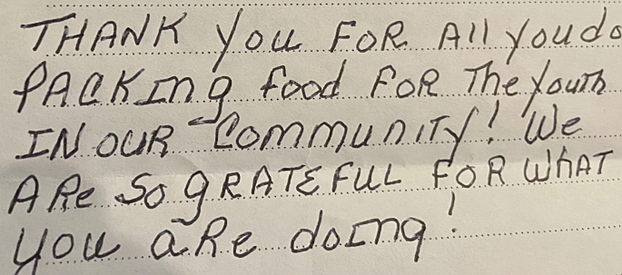 THANK YOU FOR All You do
PACKING food FOR The Youth
IN OUR Community! We
ARE SO GRATEFUL FOR WHAT
YOU ARE doing!